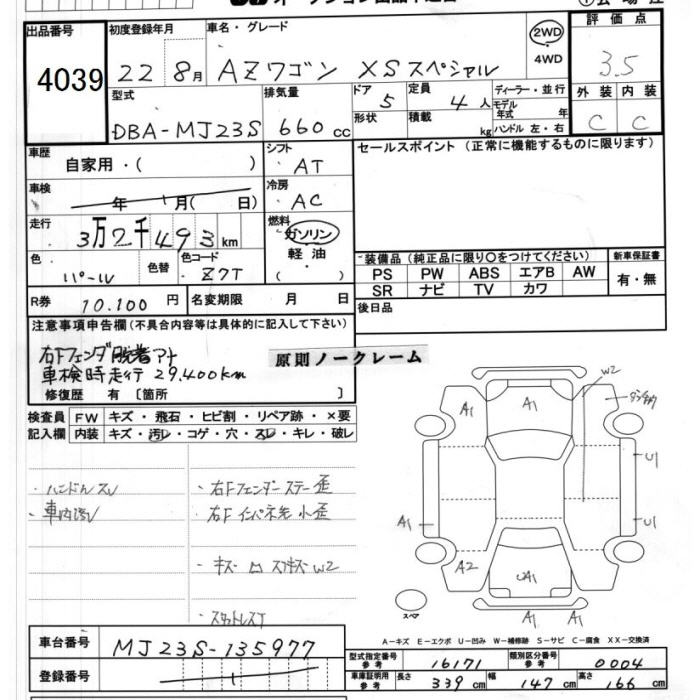 出品番号 4039
初度登録年月 22 8月
車名・グレード AZワゴン XSスペシャル
2WD
4WD
評価点 3.5
外装 内装
C C
型式 DBA-MJ23S
排気量 660 cc
ドア 5
形状
定員 4 人
積載 kg
ディーラー・並行
モデル年式 年
ハンドル 左・右
車歴 自家用・( )
シフト AT
車検 年 月( 日)
冷房 AC
走行 3万2千493km
燃料 ガソリン
軽油
( )
色 パール
色替
色コード Z7T
R券 10.100 円
名変期限 月 日
セールスポイント(正常に機能するものに限ります)
装備品(純正品に限り○をつけてください)
新車保証書
PS PW ABS エアB AW
有・無
SR ナビ TV カワ
後日品
注意事項申告欄(不具合内容等は具体的に記入して下さい)
右Fフェンダ脱着アト
車検時走行 29.400km
修復歴 有 〔箇所 〕
原則ノークレーム
検査員記入欄
FW キズ・飛石・ヒビ割・リペア跡・×要
内装 キズ・汚レ・コゲ・穴・スレ・キレ・破レ
・ハンドルスレ
・車内汚レ
・右Fフェンダーステー歪
・右Fインパネ先小歪
・スタットレスT
W2
A1
A1
U1
A1
U1
A2
UA1
A1
A1
スペア
A-キズ E-エクボ U-凹み W-補修跡 S-サビ C-腐食 XX-交換済
車台番号 MJ23S-135977
登録番号
型式指定番号 参考 16171
類別区分番号 参考 0004
車庫証明用 参考 長さ 339 cm 幅 147 cm 高さ 166 cm